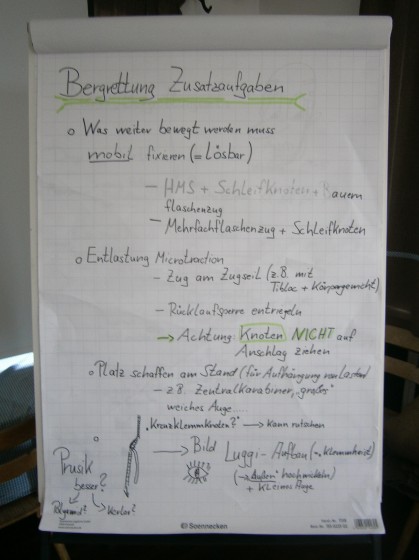 Bergrettung Zusatzaufgaben
o Was weiter bewegt werden muss
mobil fixieren (= Lösbar)
- HMS + Schleifknoten + Bauern
flaschenzug
- Mehrfachflaschenzug + Schleifknoten
o Entlastung Microtraction
- Zug am Zugseil (z.B. mit
Tibloc + Körpergewicht)
- Rücklaufsperre entriegeln
→ Achtung: Knoten NICHT auf
Anschlag ziehen
o Platz schaffen am Stand (für Aufhängung von Lasten)
- z.B. Zentralkarabiner, "großes"
weiches Auge
"Kreuzklemmknoten?" → Kann rutschen
o → Bild Luggi-Aufbau (→ Klemmheist)
(→ "Außen" hochwickeln)
+ kleines Auge
Prusik
besser?
Polyamid? Kevlar?
Soennecken